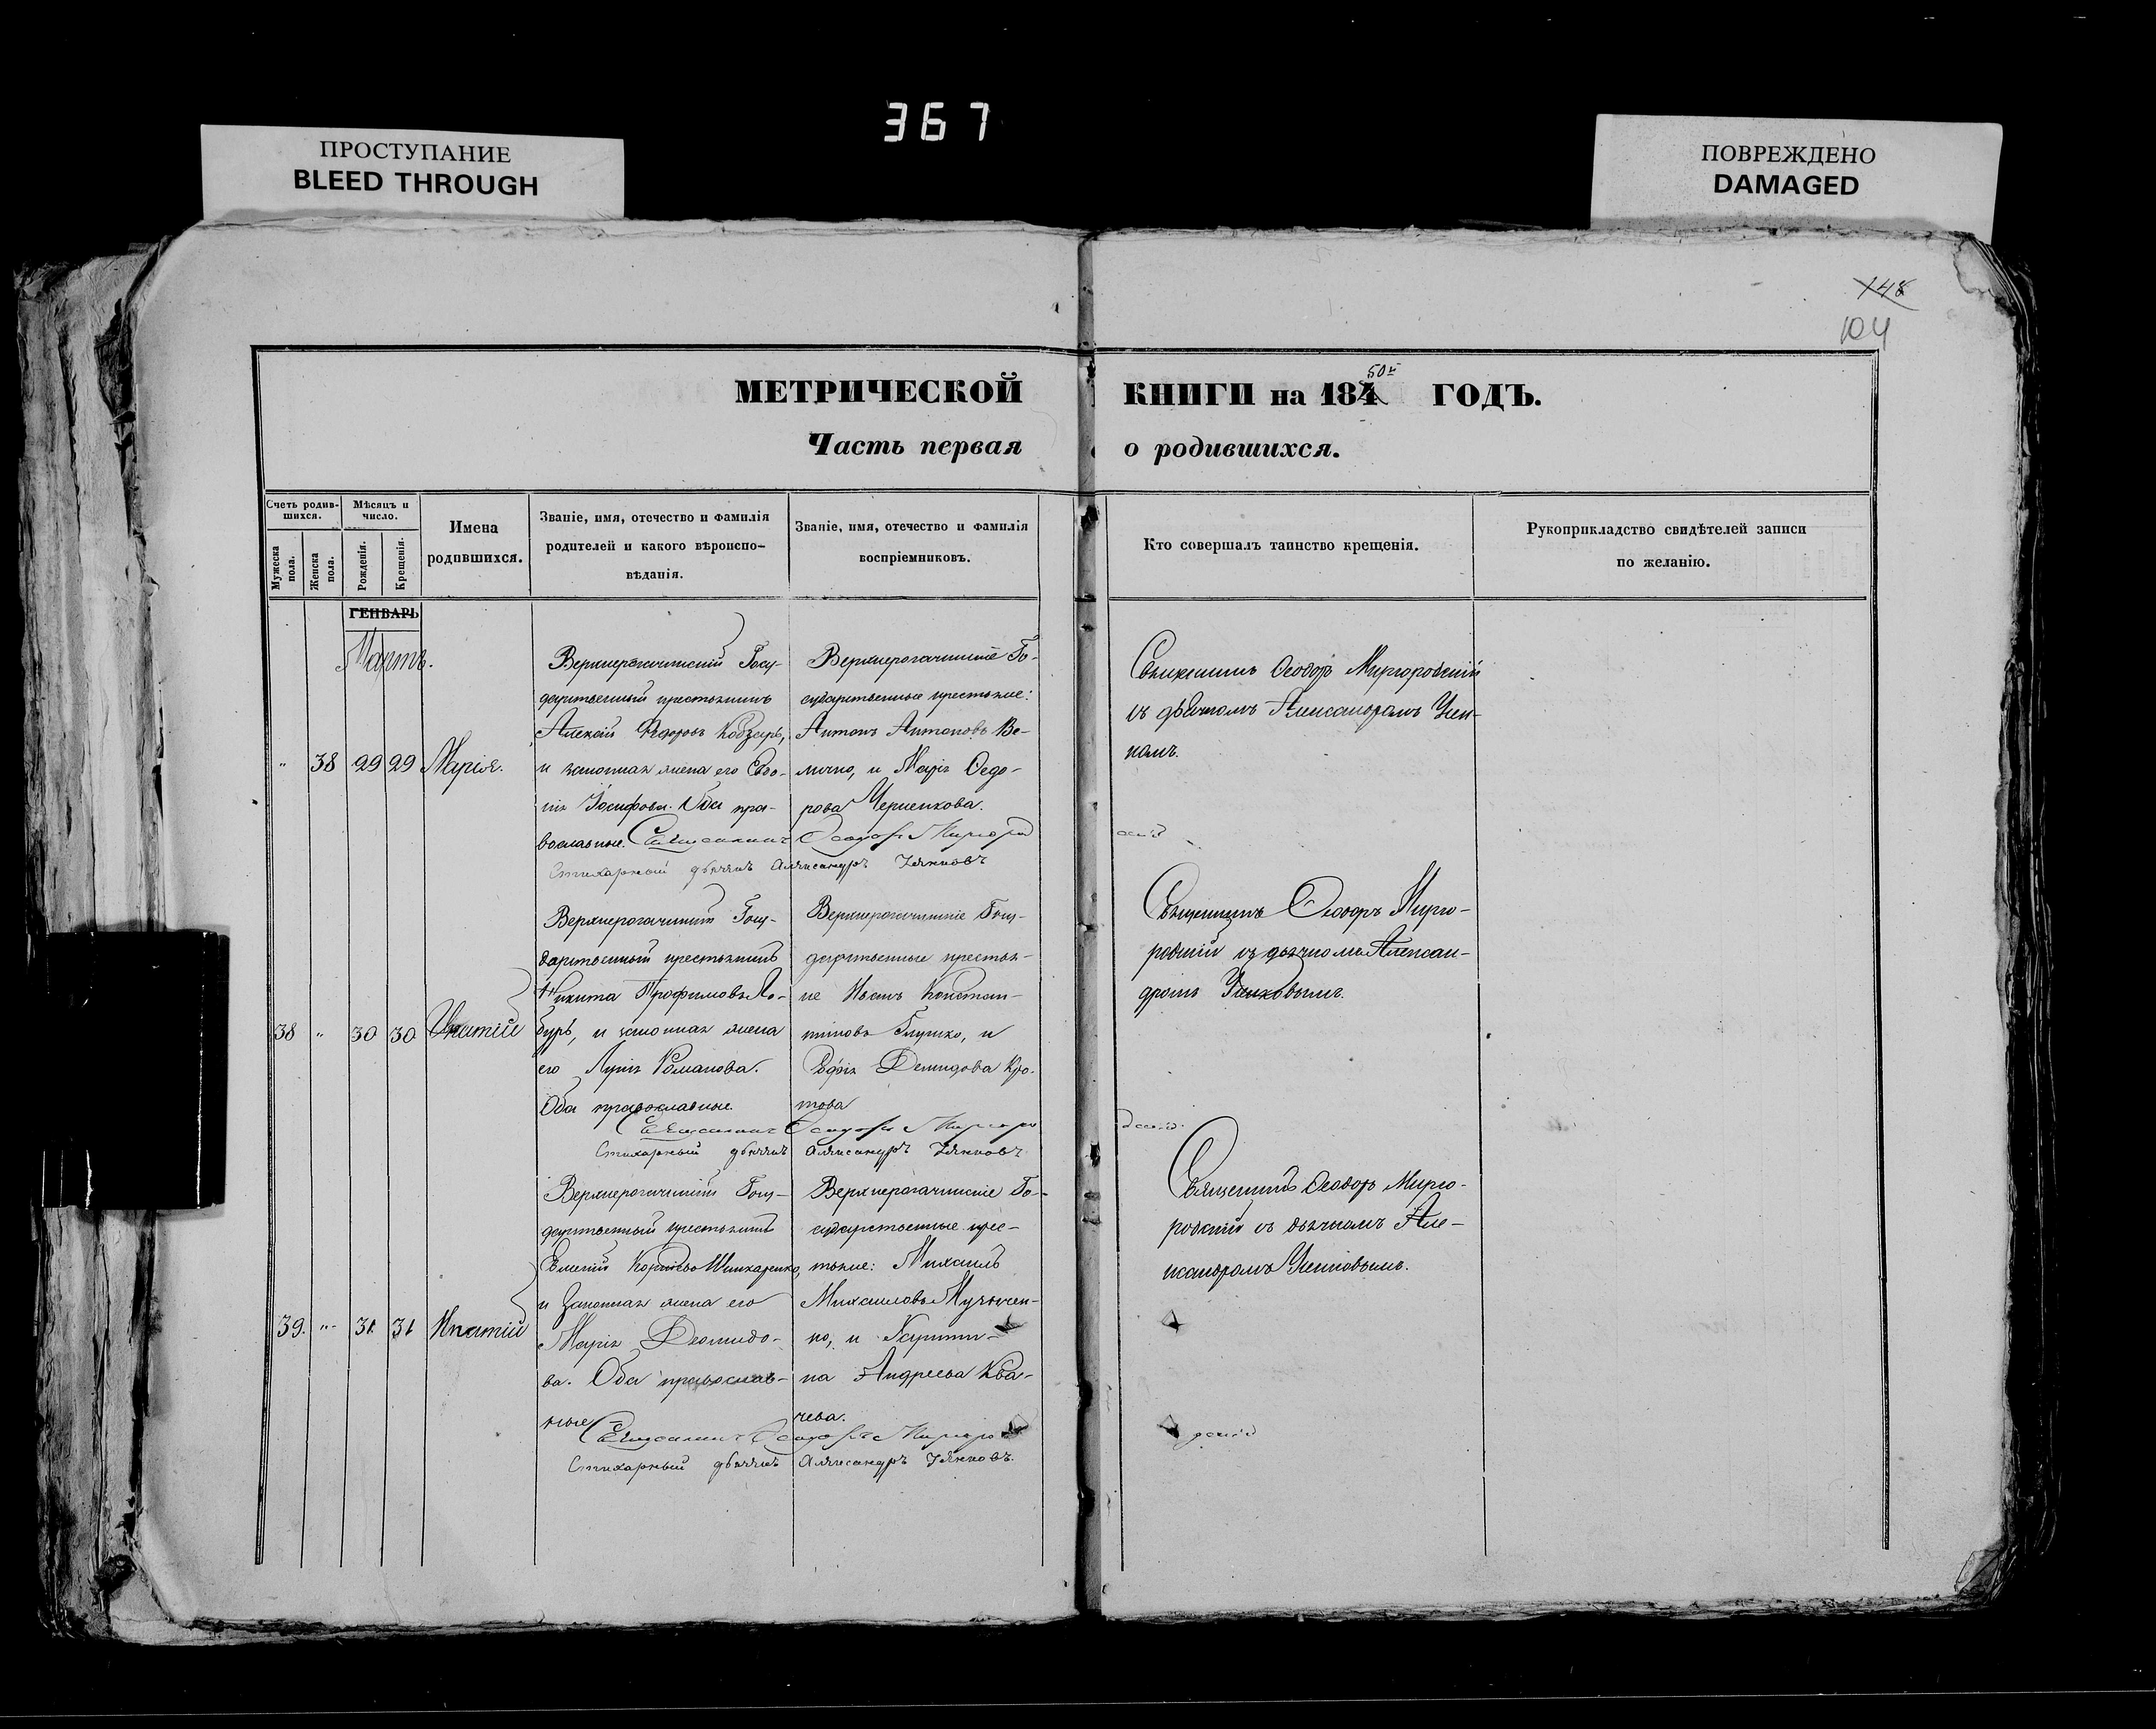 367
ПРОСТУПАНИЕ
BLEED THROUGH
ПОВРЕЖДЕНО
DAMAGED
148
104
МЕТРИЧЕСКОЙ КНИГИ на 184 50й ГОДЪ.
Часть первая о родившихся.
Счетъ родив-
шихся.
Мужеска
пола.
Женска
пола.
Мѣсяцъ и
число.
Рожденія.
Крещенія.
Имена
родившихся.
Званіе, имя, отечество и фамилія
родителей и какого вѣроиспо-
вѣданія.
Званіе, имя, отечество и фамилія
воспріемниковъ.
Кто совершалъ таинство крещенія.
Рукоприкладство свидѣтелей записи
по желанію.
ГЕНВАРЬ
Мартъ.
" 38 29 29 Марія.
Верхнерогачикскій Госу-
дарственный крестьянинъ
Алексѣй Ѳедоровъ Кобзарь,
и законная жена его Евдо-
кія Іосифова. Оба пра-
вославные.
Верхнерогачикскіе Го-
сударственные крестьяне:
Антонъ Антоновъ Ве-
личко, и Марія Ѳедо-
рова Черненкова.
Священникъ Ѳеодоръ Миргородскій
Стихарный дьячекъ Александръ
Священникъ Ѳеодоръ Миргородскій
съ дьячкомъ Александромъ
38 " 30 30 Ипатій
Верхнерогачикскій Госу-
дарственный крестьянинъ
Никита Трофимовъ Ло-
буръ, и законная жена
его Лукія Романова.
Оба православные.
Верхнерогачикскіе Госу-
дарственные крестья-
не Иванъ Констан-
тиновъ Глушко, и
Софія Демидова Кро-
това
Священникъ Ѳеодоръ Миргородскій
Стихарный дьячекъ Александръ
Священникъ Ѳеодоръ Мирго-
родскій съ дьячкомъ Алексан-
дромъ
39. " 31 31 Ипатій
Верхнерогачикскій Госу-
дарственный крестьянинъ
Шинкаренко,
и законная жена его
Марія Діомидо-
ва. Оба православ-
ные
Верхнерогачикскіе Го-
сударственные крес-
тьяне: Михаилъ
Михаиловъ Музычен-
ко, и Харити-
на Андреева Ква-
чева.
Священникъ Ѳеодоръ Миргородскій
Стихарный дьячекъ Александръ
Священникъ Ѳеодоръ Мирго-
родскій съ дьячкомъ Але-
ксандромъ